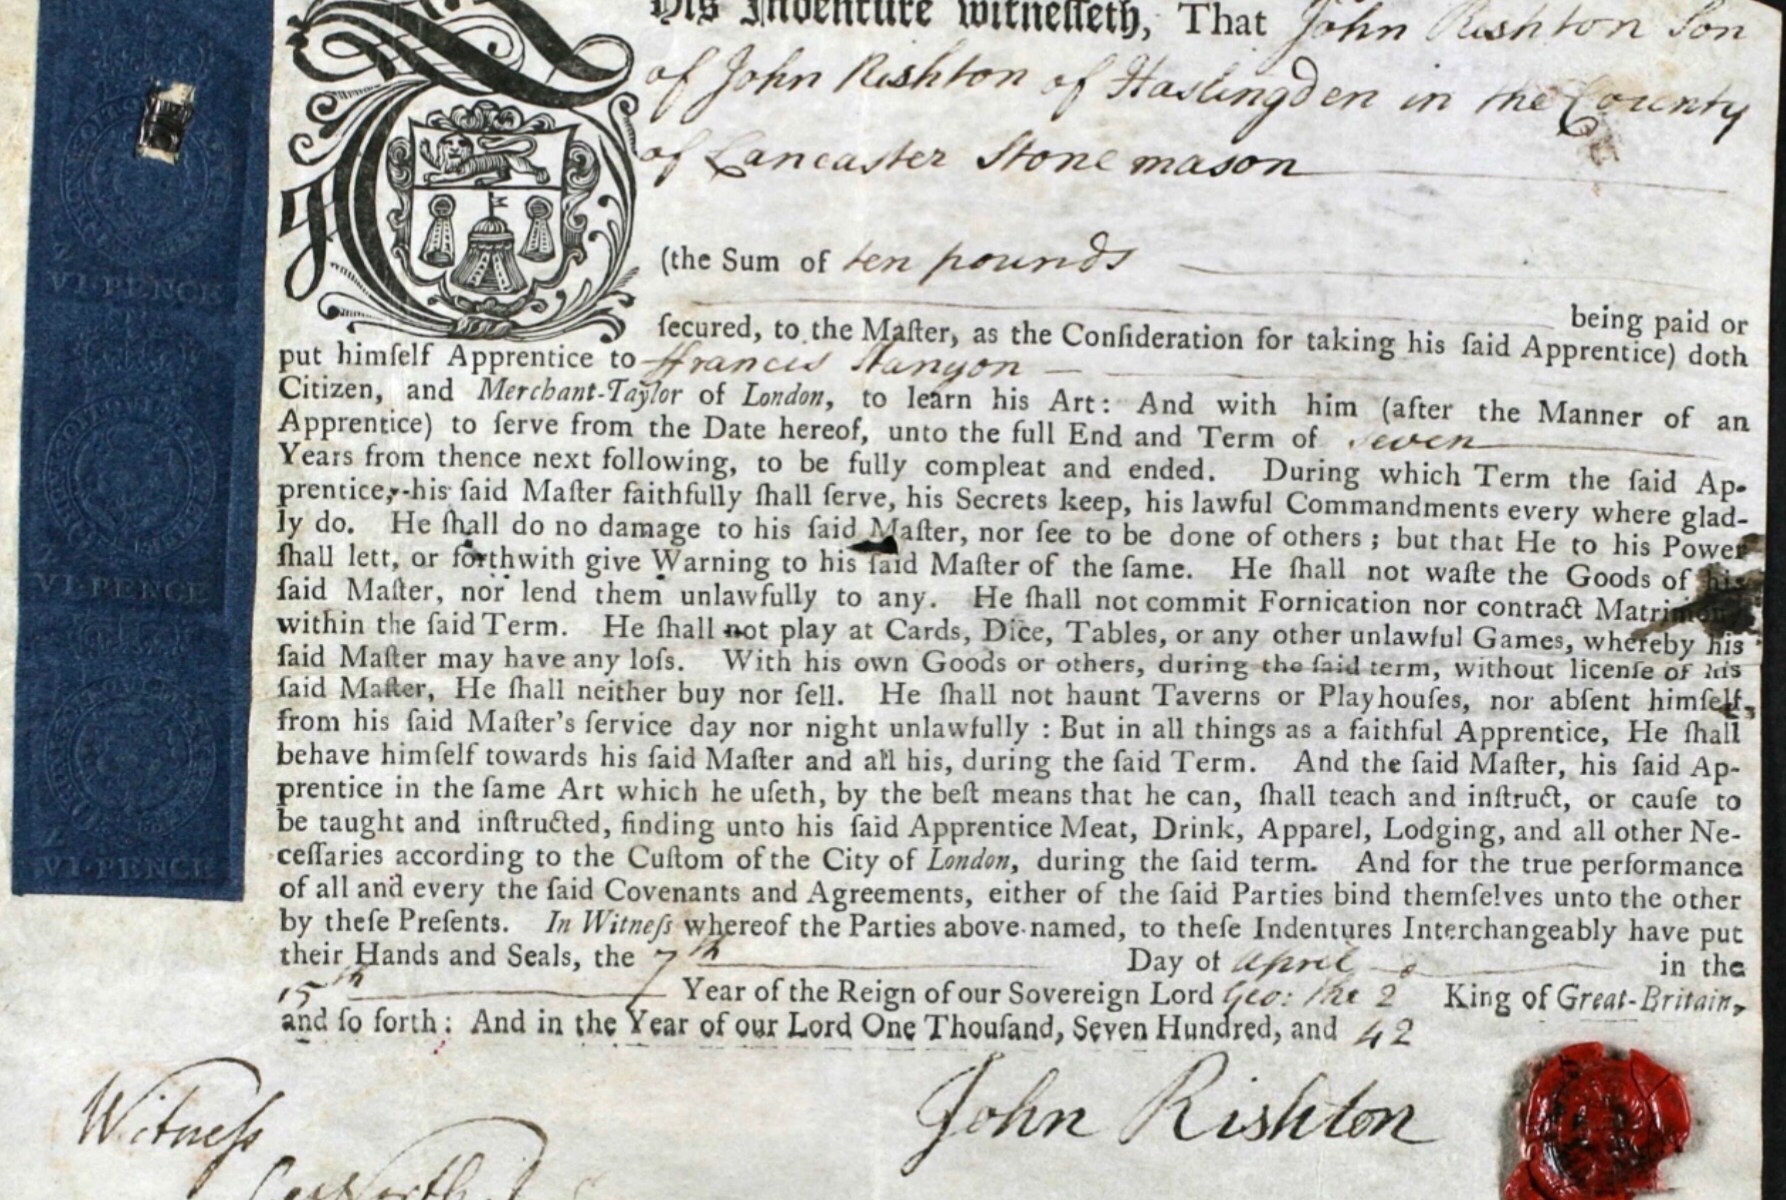 his Indenture witnesseth, That John Rishton Son
of John Rishton of Haslingden in the County
of Lancaster Stone mason
(the Sum of ten pounds
being paid or
ſecured, to the Maſter, as the Conſideration for taking his ſaid Apprentice) doth
put himſelf Apprentice to ffrancis Stanyon
Citizen, and Merchant-Taylor of London, to learn his Art: And with him (after the Manner of an
Apprentice) to ſerve from the Date hereof, unto the full End and Term of seven
Years from thence next following, to be fully compleat and ended. During which Term the ſaid Ap-
prentice, his ſaid Maſter faithfully ſhall ſerve, his Secrets keep, his lawful Commandments every where glad-
ly do. He ſhall do no damage to his ſaid Maſter, nor ſee to be done of others; but that He to his Power
ſhall lett, or forthwith give Warning to his ſaid Maſter of the ſame. He ſhall not waſte the Goods of his
ſaid Maſter, nor lend them unlawfully to any. He ſhall not commit Fornication nor contract Matrimony
within the ſaid Term. He ſhall not play at Cards, Dice, Tables, or any other unlawful Games, whereby his
ſaid Maſter may have any loſs. With his own Goods or others, during the ſaid term, without licenſe of his
ſaid Maſter, He ſhall neither buy nor ſell. He ſhall not haunt Taverns or Playhouſes, nor abſent himſelf
from his ſaid Maſter's ſervice day nor night unlawfully: But in all things as a faithful Apprentice, He ſhall
behave himſelf towards his ſaid Maſter and all his, during the ſaid Term. And the ſaid Maſter, his ſaid Ap-
prentice in the ſame Art which he uſeth, by the beſt means that he can, ſhall teach and inſtruct, or cauſe to
be taught and inſtructed, finding unto his ſaid Apprentice Meat, Drink, Apparel, Lodging, and all other Ne-
ceſſaries according to the Cuſtom of the City of London, during the ſaid term. And for the true performance
of all and every the ſaid Covenants and Agreements, either of the ſaid Parties bind themſelves unto the other
by theſe Preſents. In Witneſs whereof the Parties above-named, to theſe Indentures Interchangeably have put
their Hands and Seals, the 7th Day of April in the
15th Year of the Reign of our Sovereign Lord Geo: the 2d King of Great-Britain,
and ſo forth: And in the Year of our Lord One Thouſand, Seven Hundred, and 42
John Rishton
Witneſs
VI·PENCE
VI·PENCE
VI·PENCE